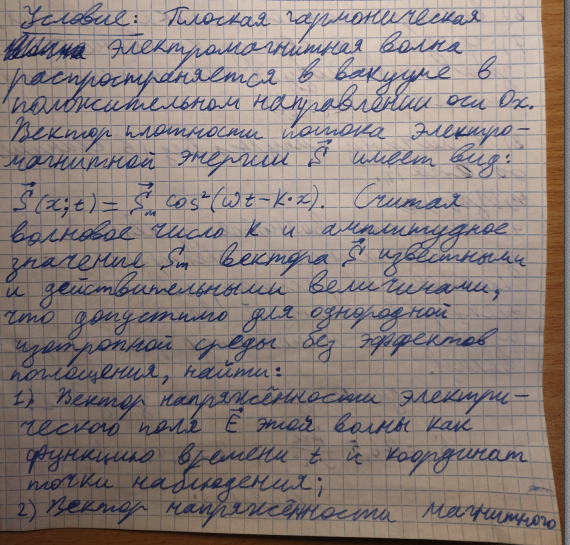 Условие: Плоская гармоническая
электромагнитная волна
распространяется в вакууме в
положительном направлении оси Ox.
Вектор плотности потока электро-
магнитной энергии S⃗ имеет вид:
S⃗(x;t) = S⃗m cos²(ωt – k·x). Считая
волновое число k и амплитудное
значение Sm вектора S⃗ известными
и действительными величинами,
что допустимо для однородной
изотропной среды без эффектов
поглощения, найти:
1) Вектор напряжённости электри-
ческого поля E⃗ этой волны как
функцию времени t и координат
точки наблюдения;
2) Вектор напряжённости магнитного